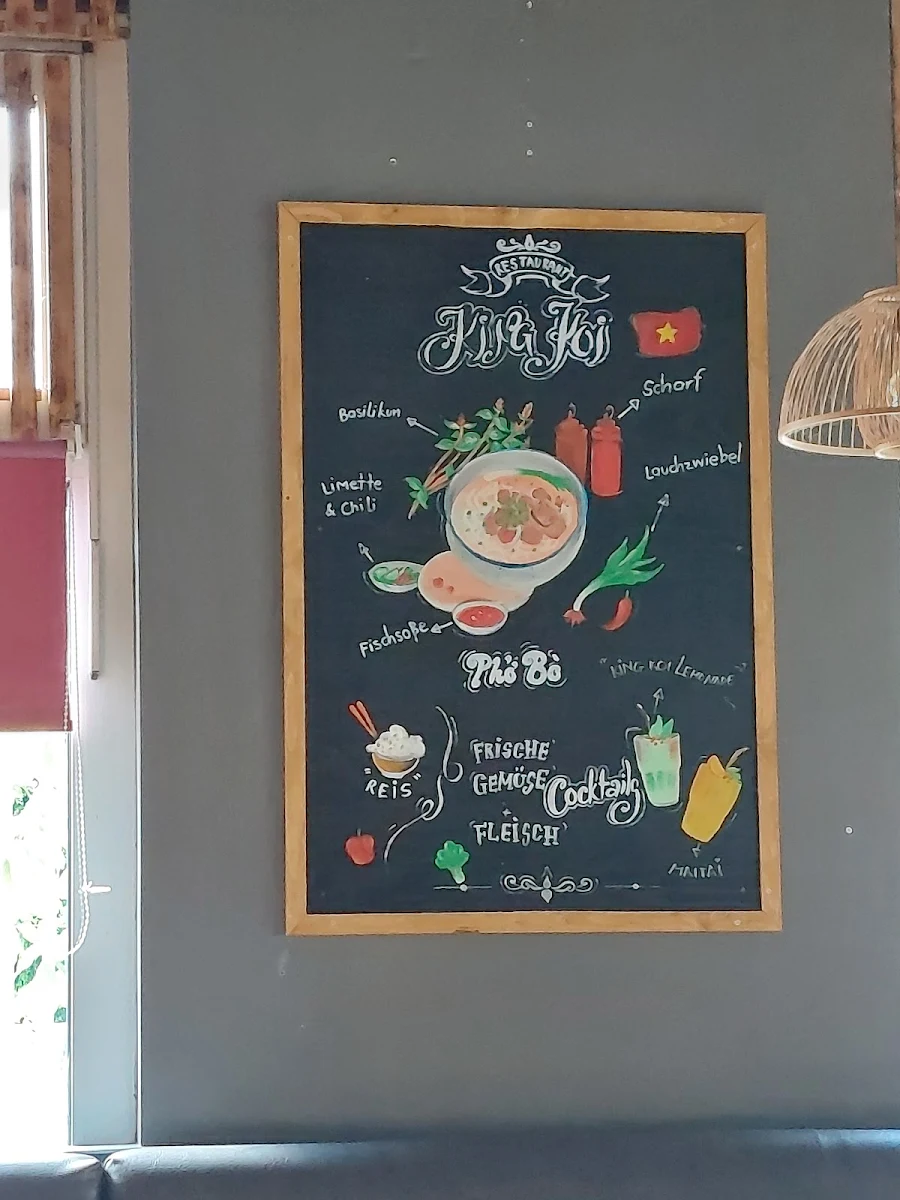 RESTAURANT
King Koi
Schorf
Basilikun
Lauchzwiebel
Limette
& Chili
Fischsoße
Phở Bò
"KING KOI LEMONADE"
FRISCHE
GEMÜSE
+
FLEISCH
"REIS"
Cocktails
MAITAI